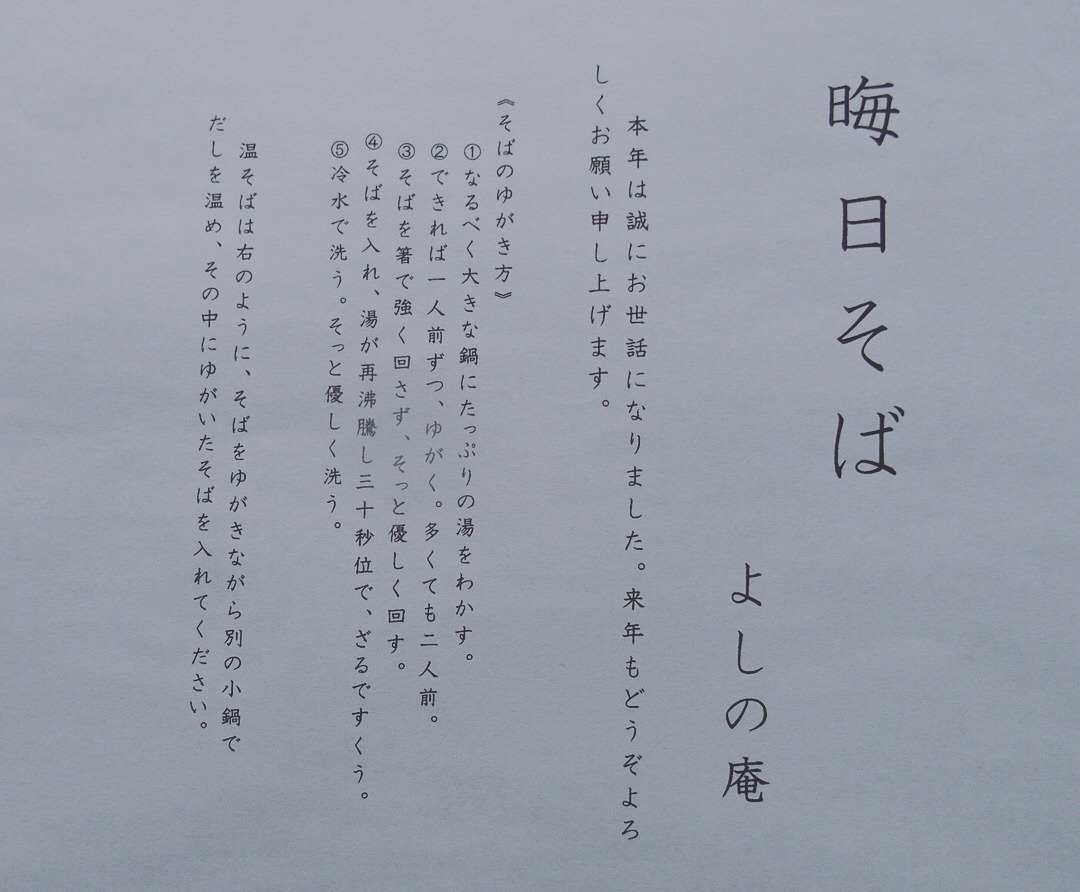 晦日そば
よしの庵
本年は誠にお世話になりました。来年もどうぞよろ
しくお願い申し上げます。
《そばのゆがき方》
①なるべく大きな鍋にたっぷりの湯をわかす。
②できれば一人前ずつ、ゆがく。多くても二人前。
③そばを箸で強く回さず、そっと優しく回す。
④そばを入れ、湯が再沸騰し三十秒位で、ざるですくう。
⑤冷水で洗う。そっと優しく洗う。
温そばは右のように、そばをゆがきながら別の小鍋で
だしを温め、その中にゆがいたそばを入れてください。